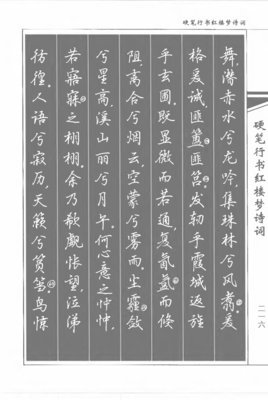 硬笔行书红楼梦诗词
舞,潜赤水兮龙吟,集珠林兮凤翥。爰
格爰诚,匪簠匪筥。发轫乎霞城,返旌
乎玄圃。既显微而若通,复氤氲而倏
阻。离合兮烟云,空蒙兮雾雨。尘霾敛
兮星高,溪山丽兮月午。何心意之忡忡,
若寤寐之栩栩。余乃欷歔怅望,泣涕
彷徨。人语兮寂历,天籁兮筼筜。鸟惊
硬笔行书红楼梦诗词
二一六